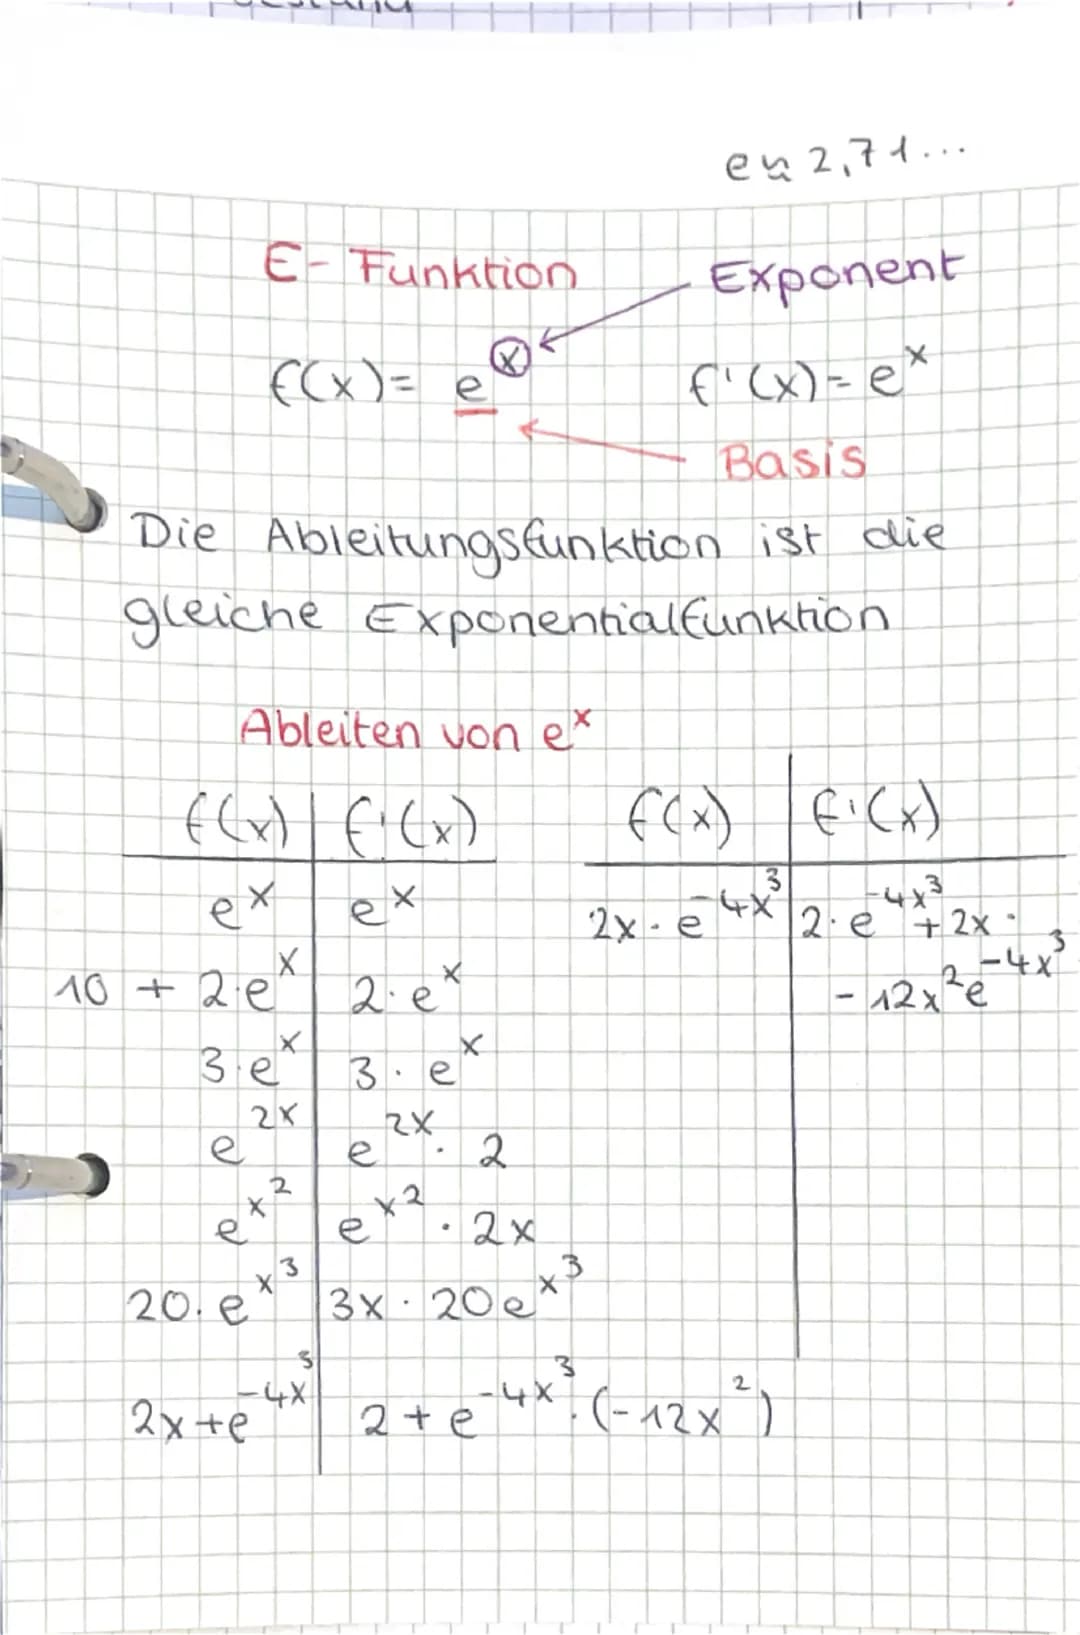 e ≈ 2,71...
E-Funktion
Exponent
f(x) = eˣ
f'(x) = eˣ
Basis
Die Ableitungsfunktion ist die
gleiche Exponentialfunktion
Ableiten von eˣ
f(x) | f'(x)
eˣ | eˣ
10 + 2·eˣ | 2·eˣ
3·eˣ | 3·eˣ
e^2x | e^2x · 2
e^x² | e^x² · 2x
20·e^x³ | 3x · 20e^x³
2x+e^-4x³ | 2+e^-4x³·(-12x²)
f(x) | f'(x)
2x·e^-4x³ | 2·e^-4x³ + 2x·
-12x²e^-4x³